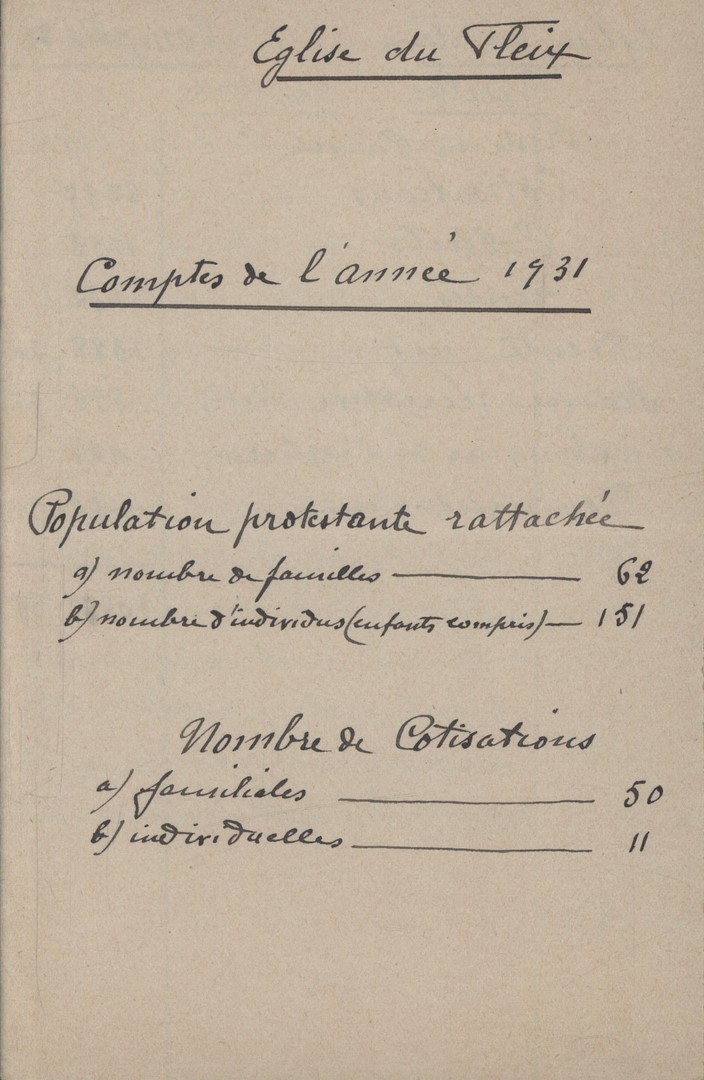 Eglise du Fleix
Comptes de l'année 1931
Population protestante rattachée
a) nombre de familles — 62
b) nombre d'individus (enfants compris) — 151
Nombre de Cotisations
a) familiales — 50
b) individuelles — 11